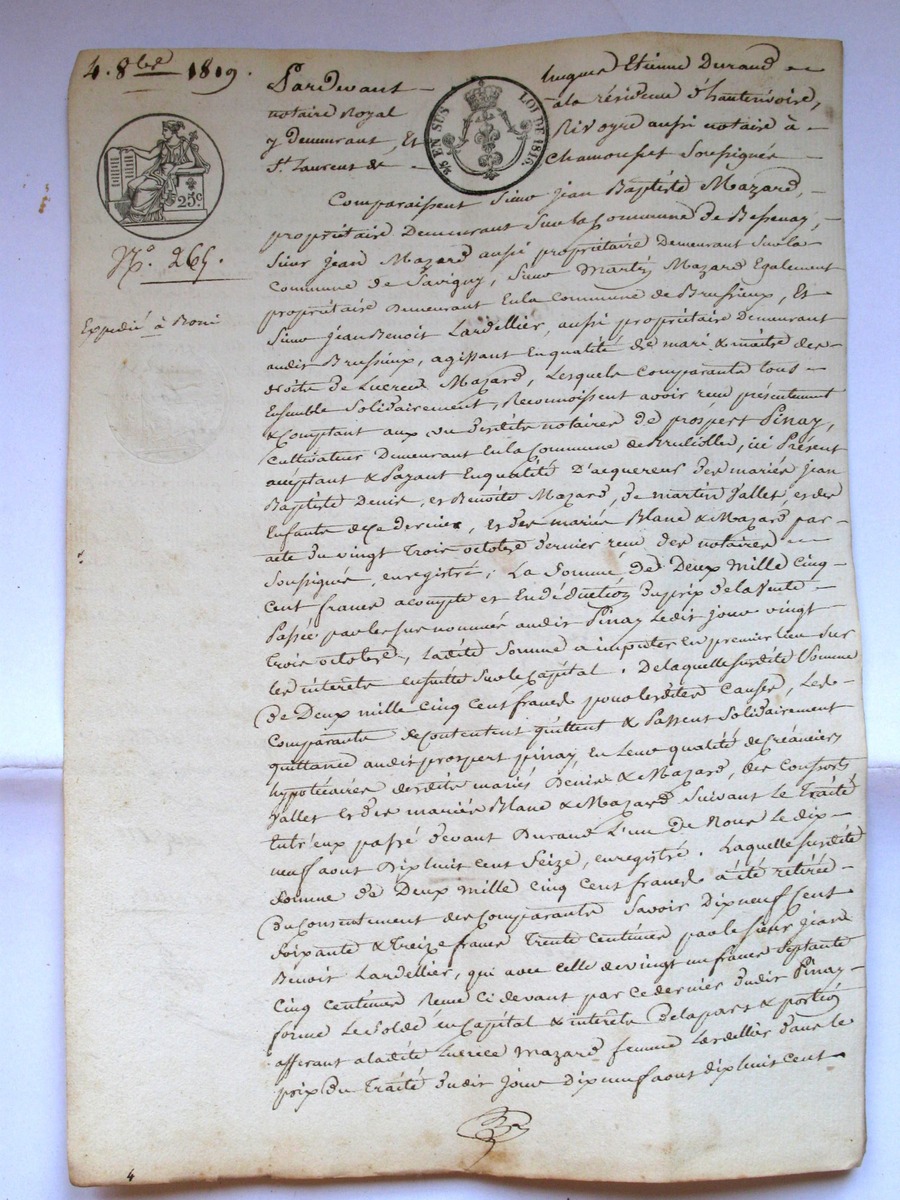 4. 8bre 1819.
25c
Nº. 265.
Expedié à Roni
25 EN SUS LOI DE 1816.
Pardevant Hugues Etienne Durand
notaire Royal à la résidence d'hauterivoire,
y demeurant, Et Rivoyre aussi notaire à
St. Laurent de Chamousset Soussignés
Comparaissent Sieur Jean Baptiste Mazard,
propriétaire Demeurant Sur la Commune de Bessenay,
Sieur Jean Mazard aussi propriétaire Demeurant Sur la
Commune de Savigny, Sieur Martin Mazard Egalement
propriétaire Demeurant En la Commune de Brussieux, Et
Sieur Jean Benoit Lardellier, aussi propriétaire Demeurant
audit Brussieux, agissant En qualité de mari & maitre des
droits de Lucrece Mazard, Lesquels Comparants tous
Ensemble Solidairement, Reconnoissent avoir reçu présentement
& Comptant aux vu desdits notaires de prospert Pinay,
Cultivateur Demeurant En la Commune de, ici Présent
acceptant & Payant En qualité D'acquereur des mariés Jean
Baptiste Denis, et Benoite Mazard, de martin Vallet, et des
Enfants de ce dernier, et des mariés Blanc & Mazard par
acte du vingt trois octobre dernier reçu des notaires
Soussignés, enregistré; La Somme de Deux Mille Cinq
Cent francs acompte et En déduction du prix de la Vente
Passée par les sus nommés audit Pinay Ledit jour vingt
trois octobre, Ladite Somme a imputer En premier lieu Sur
les intérêts ensuitte Sur le Capital. De laquelle susdite Somme
de Deux mille Cinq Cent francs pour lesdites Causes, Les
Comparants Se Contentent quittent & Passent Solidairement
quittance audit prospert pinay, En Leur qualité de Créanciers
hypotécaires desdits mariés Denis & Mazard, des Consorts
Vallet et des mariés Blanc & Mazard Suivant Le Traité
Entr'eux passé devant Durand L'un de Nous Le dix
neuf aout Dix huit cent Seize, enregistré. Laquelle Susdite
Somme de Deux mille Cinq Cent francs à été retirée
du Consentement des Comparants Savoir Dix neuf Cent
Soixante & Treize francs Trente Centimes par le Sieur Jean
Benoit Lardellier, qui avec Celle de vingt un francs Septante
Cinq Centimes Reçue Ci devant par Ce dernier dudit Pinay
forme Le Solde en Capital & intérêts De la part & portion
afferant a ladite Lucrece Mazard femme Lardellier dans le
prix du Traité dudit jour Dix neuf aout dix huit cent
4